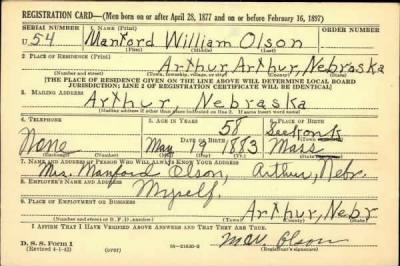 REGISTRATION CARD—(Men born on or after April 28, 1877 and on or before February 16, 1897)
SERIAL NUMBER 1. NAME (Print) ORDER NUMBER
U 54 Manford William Olson
(First) (Middle) (Last)
2. PLACE OF RESIDENCE (Print)
Arthur, Arthur, Nebraska
(Number and street) (Town, township, village, or city) (County) (State)
[THE PLACE OF RESIDENCE GIVEN ON THE LINE ABOVE WILL DETERMINE LOCAL BOARD
JURISDICTION; LINE 2 OF REGISTRATION CERTIFICATE WILL BE IDENTICAL]
3. MAILING ADDRESS
Arthur, Nebraska
[Mailing address if other than place indicated on line 2. If same insert word same]
4. TELEPHONE 5. AGE IN YEARS 6. PLACE OF BIRTH
58
None DATE OF BIRTH
May 19 1883 Mass
(Exchange) (Number) (Mo.) (Day) (Yr.) (State or country)
7. NAME AND ADDRESS OF PERSON WHO WILL ALWAYS KNOW YOUR ADDRESS
Mrs. Manford Olson, Arthur, Nebr.
8. EMPLOYER'S NAME AND ADDRESS
Myself
9. PLACE OF EMPLOYMENT OR BUSINESS
Arthur, Nebr
(Number and street or R. F. D. number) (Town) (County) (State)
I AFFIRM THAT I HAVE VERIFIED ABOVE ANSWERS AND THAT THEY ARE TRUE.
D. S. S. Form 1
(Revised 4-1-42) (over) 16—21630-2 Olson
(Registrant's signature)